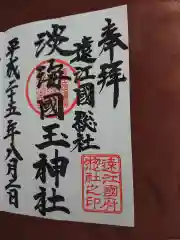 奉拝
遠江國総社
淡海國玉神社
平成二十五年八月二日
遠江國府
総社之印